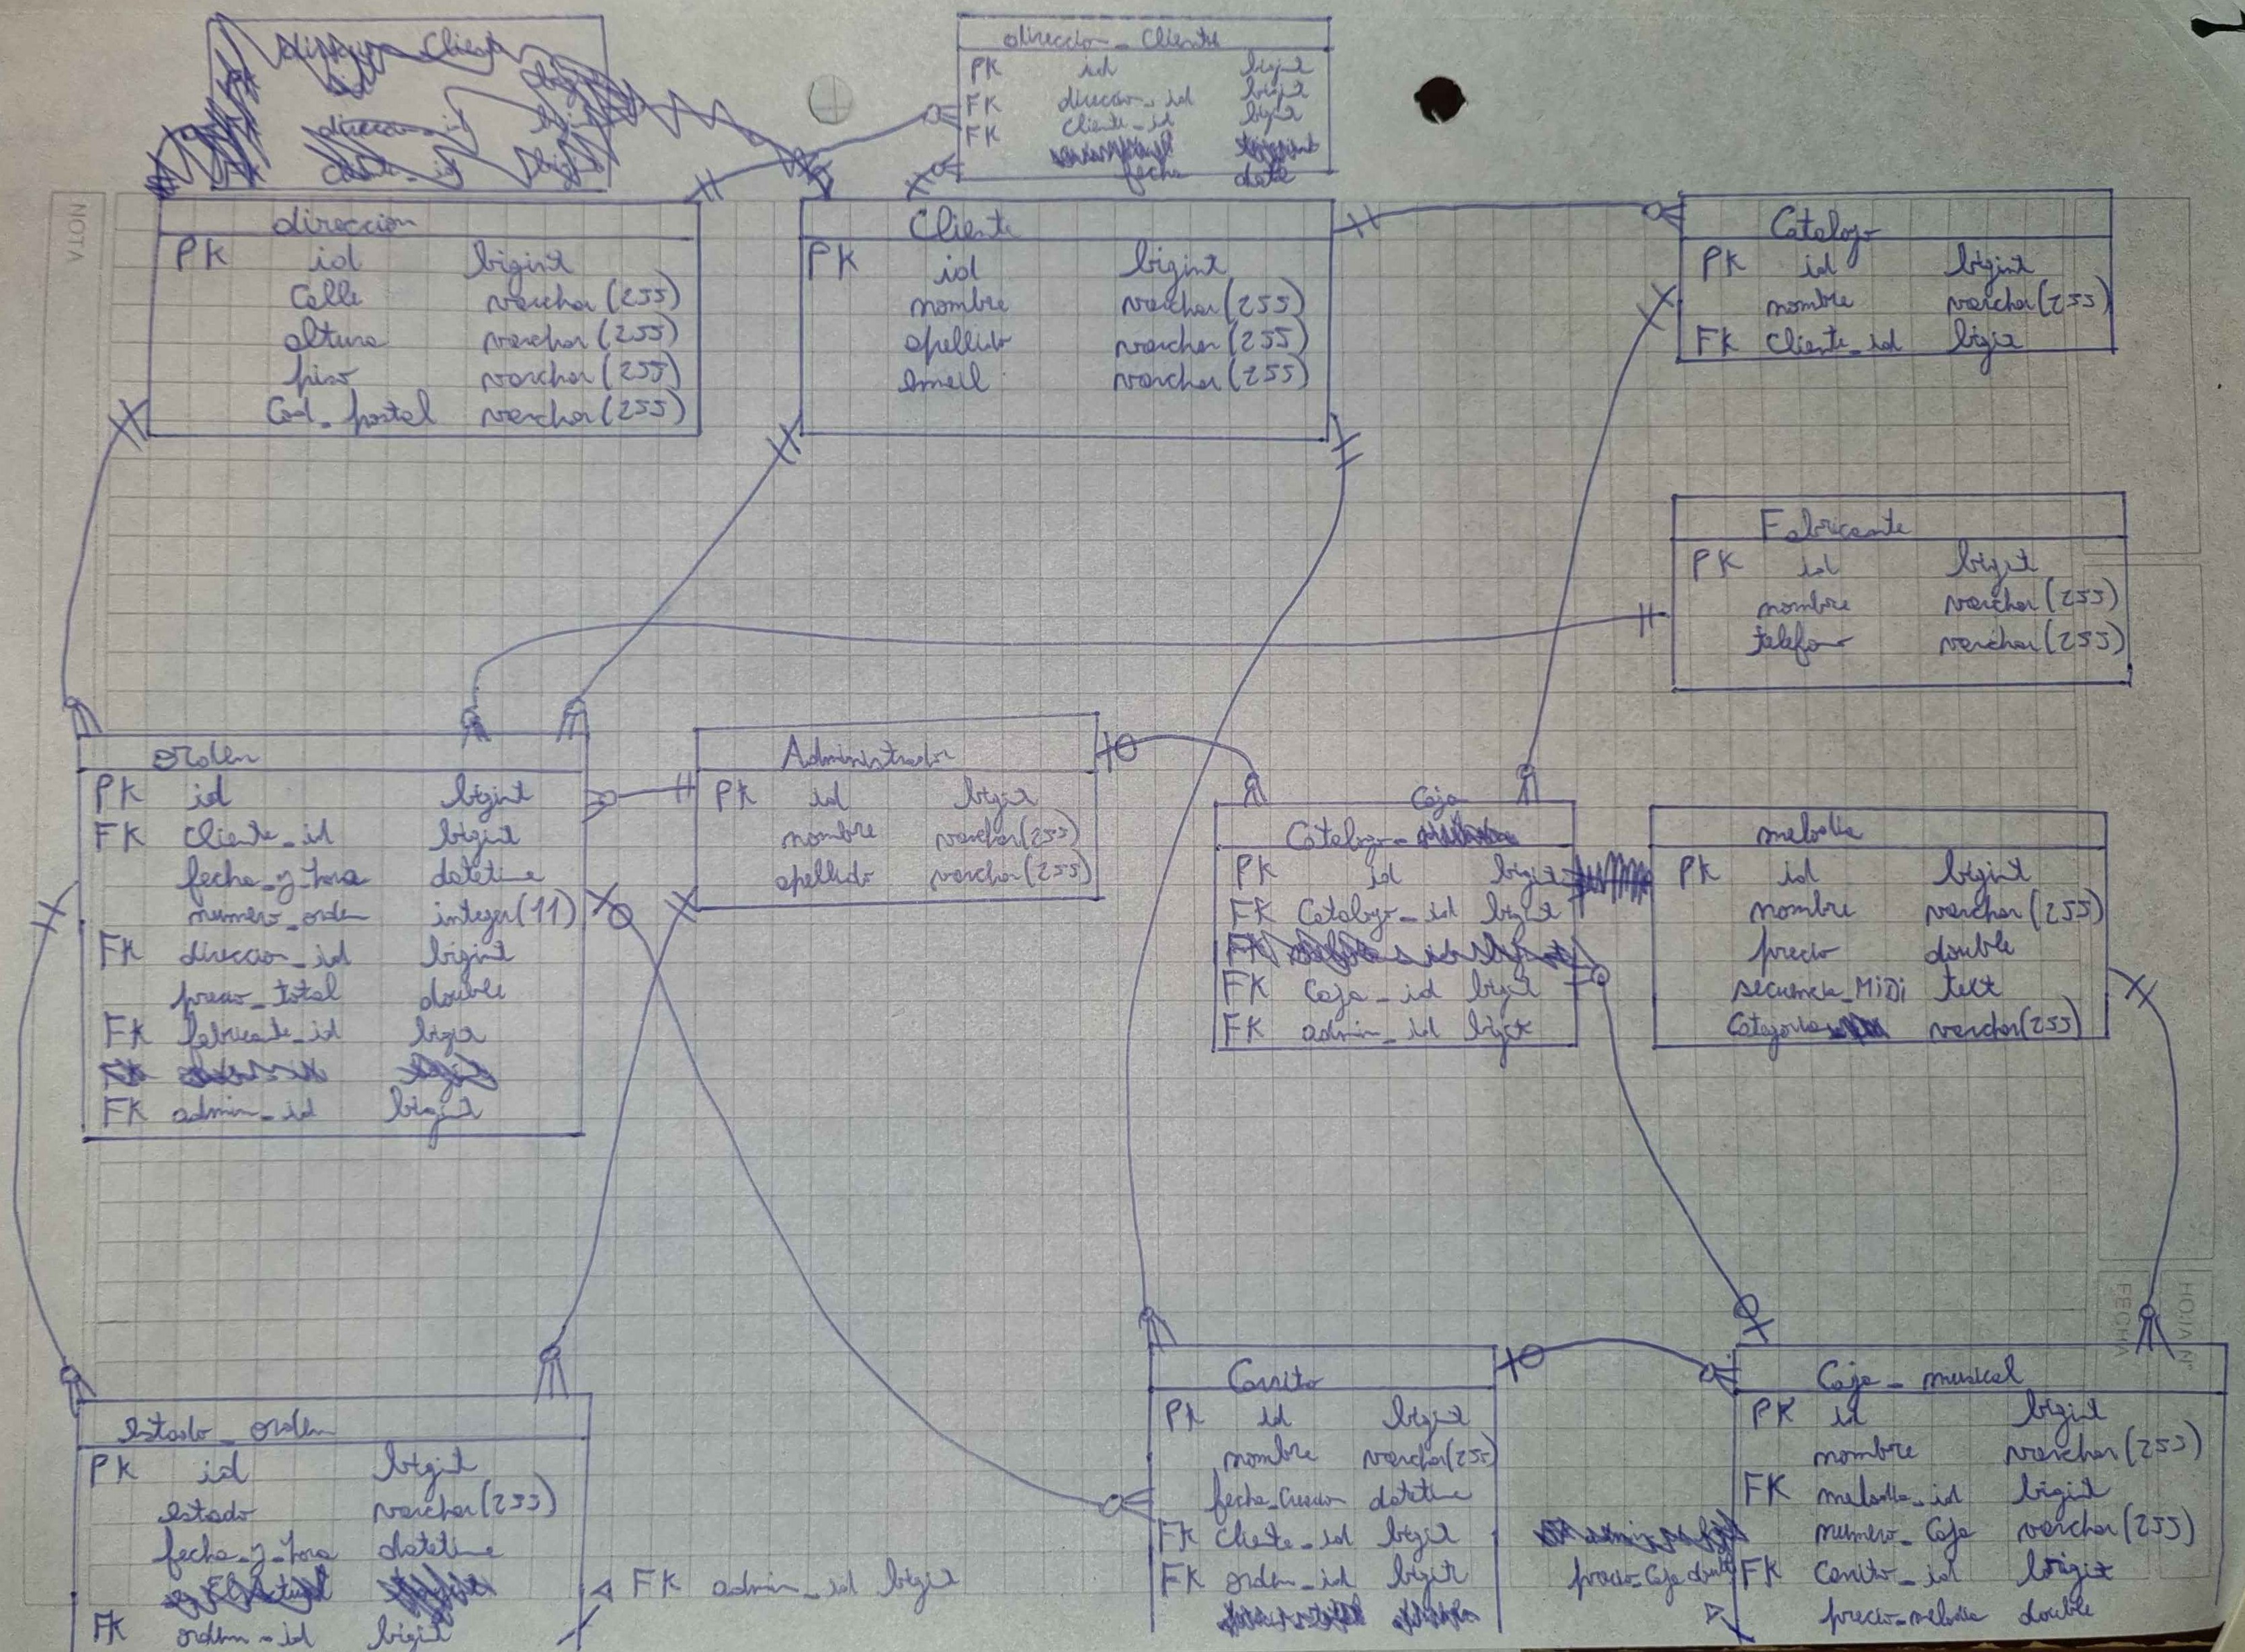 direccion_cliente
PK id bigint
FK direccion_id bigint
FK cliente_id bigint
fecha date
direccion
PK id bigint
Calle varchar(255)
altura varchar(255)
piso varchar(255)
Cod_postal varchar(255)
Cliente
PK id bigint
nombre varchar(255)
apellido varchar(255)
email varchar(255)
Catalogo
PK id bigint
nombre varchar(255)
FK Cliente_id bigint
NOTA
Fabricante
PK id bigint
nombre varchar(255)
telefono varchar(255)
orden
PK id bigint
FK Cliente_id bigint
fecha_y_hora datetime
numero_orden integer(11)
FK direccion_id bigint
precio_total double
FK fabricante_id bigint
FK admin_id bigint
Administrador
PK id bigint
nombre varchar(255)
apellido varchar(255)
Caja
Catalogo_
PK id bigint
FK Catalogo_id bigint
FK Caja_id bigint
FK admin_id bigint
melodia
PK id bigint
nombre varchar(255)
precio double
secuencia_MiDi text
Categoria varchar(255)
estado_orden
PK id bigint
estado varchar(255)
fecha_y_hora datetime
FK orden_id bigint
FK admin_id bigint
Carrito
PK id bigint
nombre varchar(255)
fecha_Creacion datetime
FK Cliente_id bigint
FK orden_id bigint
Caja_musical
PK id bigint
nombre varchar(255)
FK melodia_id bigint
numero_Caja varchar(255)
FK Carrito_id bigint
precio_melodia double
precio_Caja double
HOJA Nº
FECHA